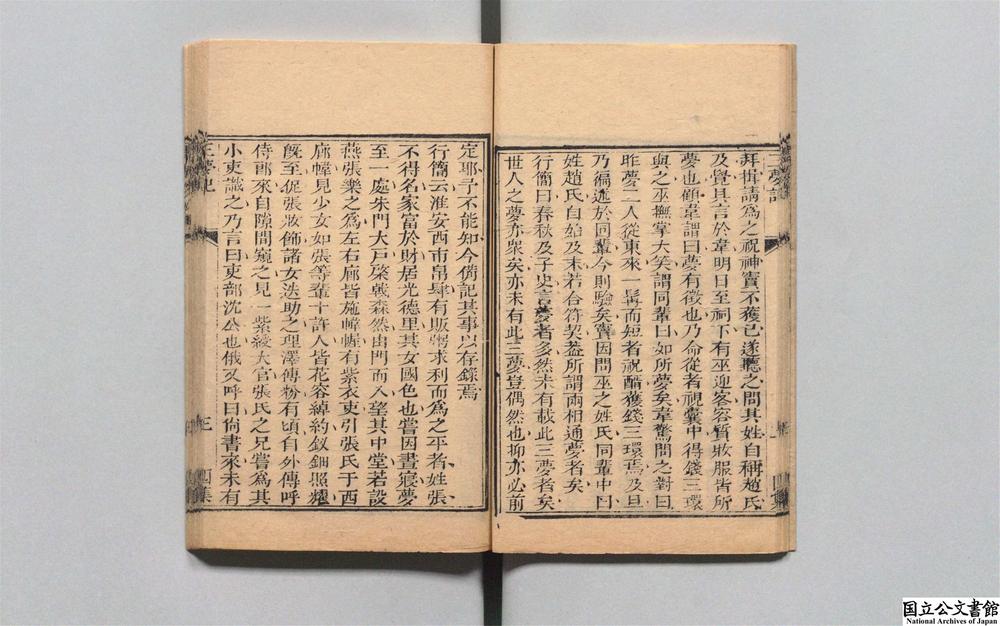 三夢記
拜揖請爲之祝神竇不獲已遂聽之問其姓自稱趙氏
及覺具言於韋明日至祠下有巫迎客容質妝服皆所
夢也顧韋謂曰夢有徵也乃命從者視囊中得錢三環
與之巫撫掌大笑謂同輩曰如所夢矣韋驚問之對曰
昨夢二人從東來一髯而短者祝醑獲錢三環焉及旦
乃徧述於同輩今則驗矣竇因問巫之姓氏同輩中曰
姓趙氏自始及末若合符契葢所謂兩相通夢者矣
行簡曰春秋及子史言夢者多然未有載此三夢者矣
世人之夢亦衆矣亦未有此三夢豈偶然也抑亦必前
四集
定耶予不能知今備記其事以存錄焉
行簡云淮安西市帛肆有販粥求利而爲之平者姓張
不得名家富於財居光德里其女國色也嘗因晝寢夢
至一處朱門大戸棨戟森然由門而入望其中堂若設
燕張樂之爲左右廊皆施幃幄有紫衣吏引張氏于西
廊幃見少女如張等輩十許人皆花容綽約釵鈿照耀
旣至促張妝飾諸女迭助之理澤傅粉有頃自外傳呼
侍郞來自隙間窺之見一紫綬大官張氏之兄嘗爲其
小吏識之乃言曰吏部沈公也俄又呼曰尙書來又有
三夢記
三
四集
国立公文書館
National Archives of Japan